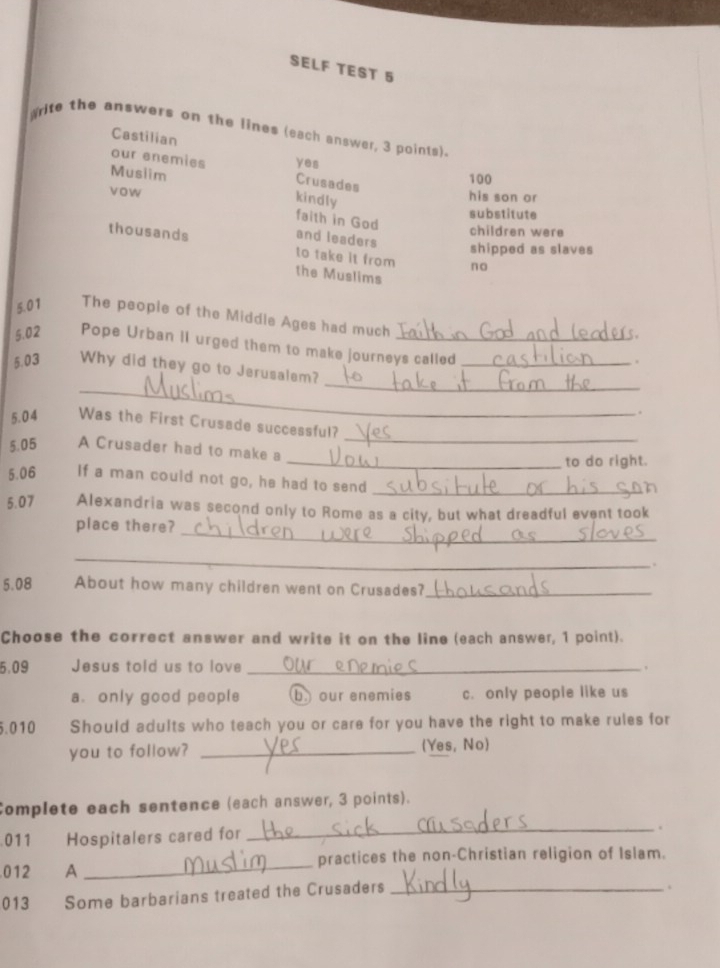 SELF TEST 5
Write the answers on the lines (each answer, 3 points).
Castilian
our enemies
Muslim
vow
thousands
yes
Crusades
kindly
faith in God
and leaders
to take it from
the Muslims
100
his son or
substitute
children were
shipped as slaves
no
5.01 The people of the Middle Ages had much Faith in God and leaders.
5.02 Pope Urban II urged them to make journeys called castilian.
5.03 Why did they go to Jerusalem? to take it from the
Muslims.
5.04 Was the First Crusade successful? Yes
5.05 A Crusader had to make a Vow to do right.
5.06 If a man could not go, he had to send subsitute or his son
5.07 Alexandria was second only to Rome as a city, but what dreadful event took
place there? children were shipped as slaves
.
5.08 About how many children went on Crusades? thousands
Choose the correct answer and write it on the line (each answer, 1 point).
5.09 Jesus told us to love our enemies.
a. only good people b. our enemies c. only people like us
5.010 Should adults who teach you or care for you have the right to make rules for
you to follow? yes (Yes, No)
Complete each sentence (each answer, 3 points).
.011 Hospitalers cared for the sick crusaders.
.012 A muslim practices the non-Christian religion of Islam.
013 Some barbarians treated the Crusaders Kindly.